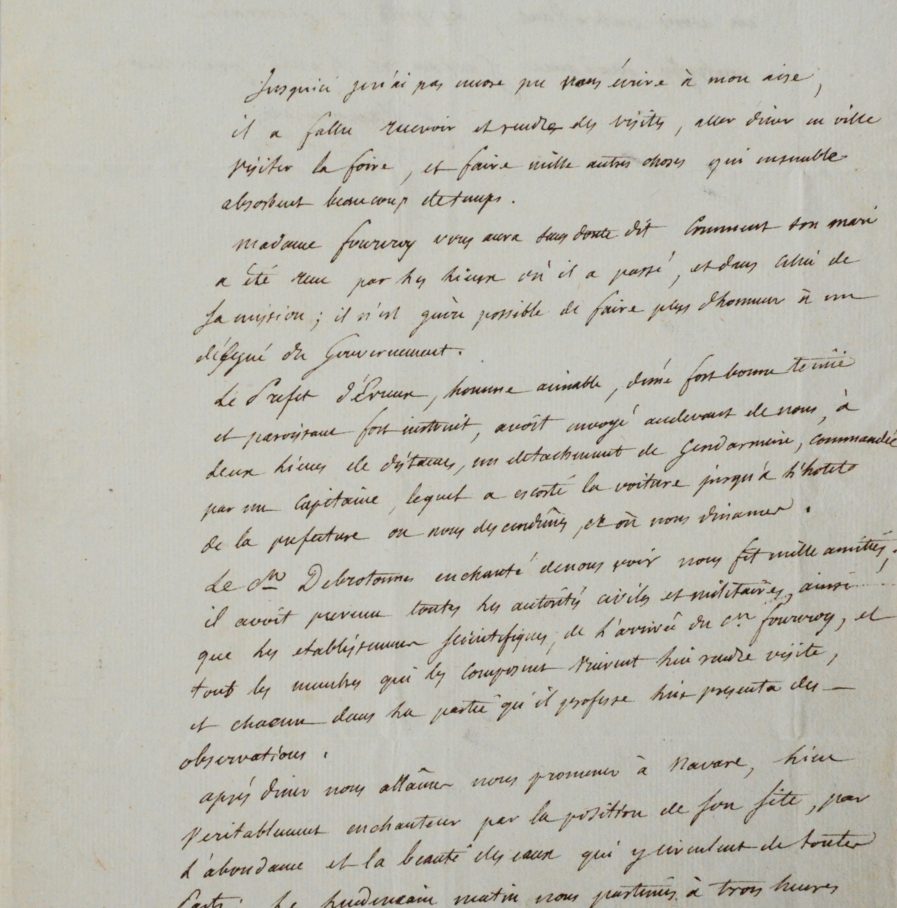 Jusqu'ici je n'ai pas encore pu vous écrire à mon aise,
il a fallu recevoir et rendre des visites, aller diner en ville
visiter la foire, et faire mille autres choses qui ensemble
absorbent beaucoup de temps.
Madame fourcroy vous aura sans doute dit comment son mari
a été recu par les lieux où il a passé, et dans celui de
sa mission; il n'est guère possible de faire plus d'honneur à un
délégué du Gouvernement.
Le Prefet d'Evreux, homme aimable, d'une fort bonne tenüe
et paroissant fort instruit, avoit envoyé audevant de nous, à
deux lieues de distance, un detachement de Gendarmerie, commandé
par un Capitaine, lequel a escorté la voiture jusqu'à l'hotel
de la prefecture ou nous descendîmes, et où nous dinames.
Le cen Debrotonnes enchanté de nous voir nous fit mille amitiés,
il avoit prevenu toutes les autorités civiles et militaires, ainsi
que les etablissemens scientifiques, de l'arrivée du cen fourcroy, et
tous les membres qui les composent vinrent lui rendre visite,
et chacun dans la partie qu'il professe lui presenta des
observations.
après diner nous allâmes nous promener à Navare, lieu
veritablement enchanteur par la position de son site, par
l'abondance et la beauté des eaux qui y circulent de toutes
parts. Le lendemain matin nous partimes à trois heures